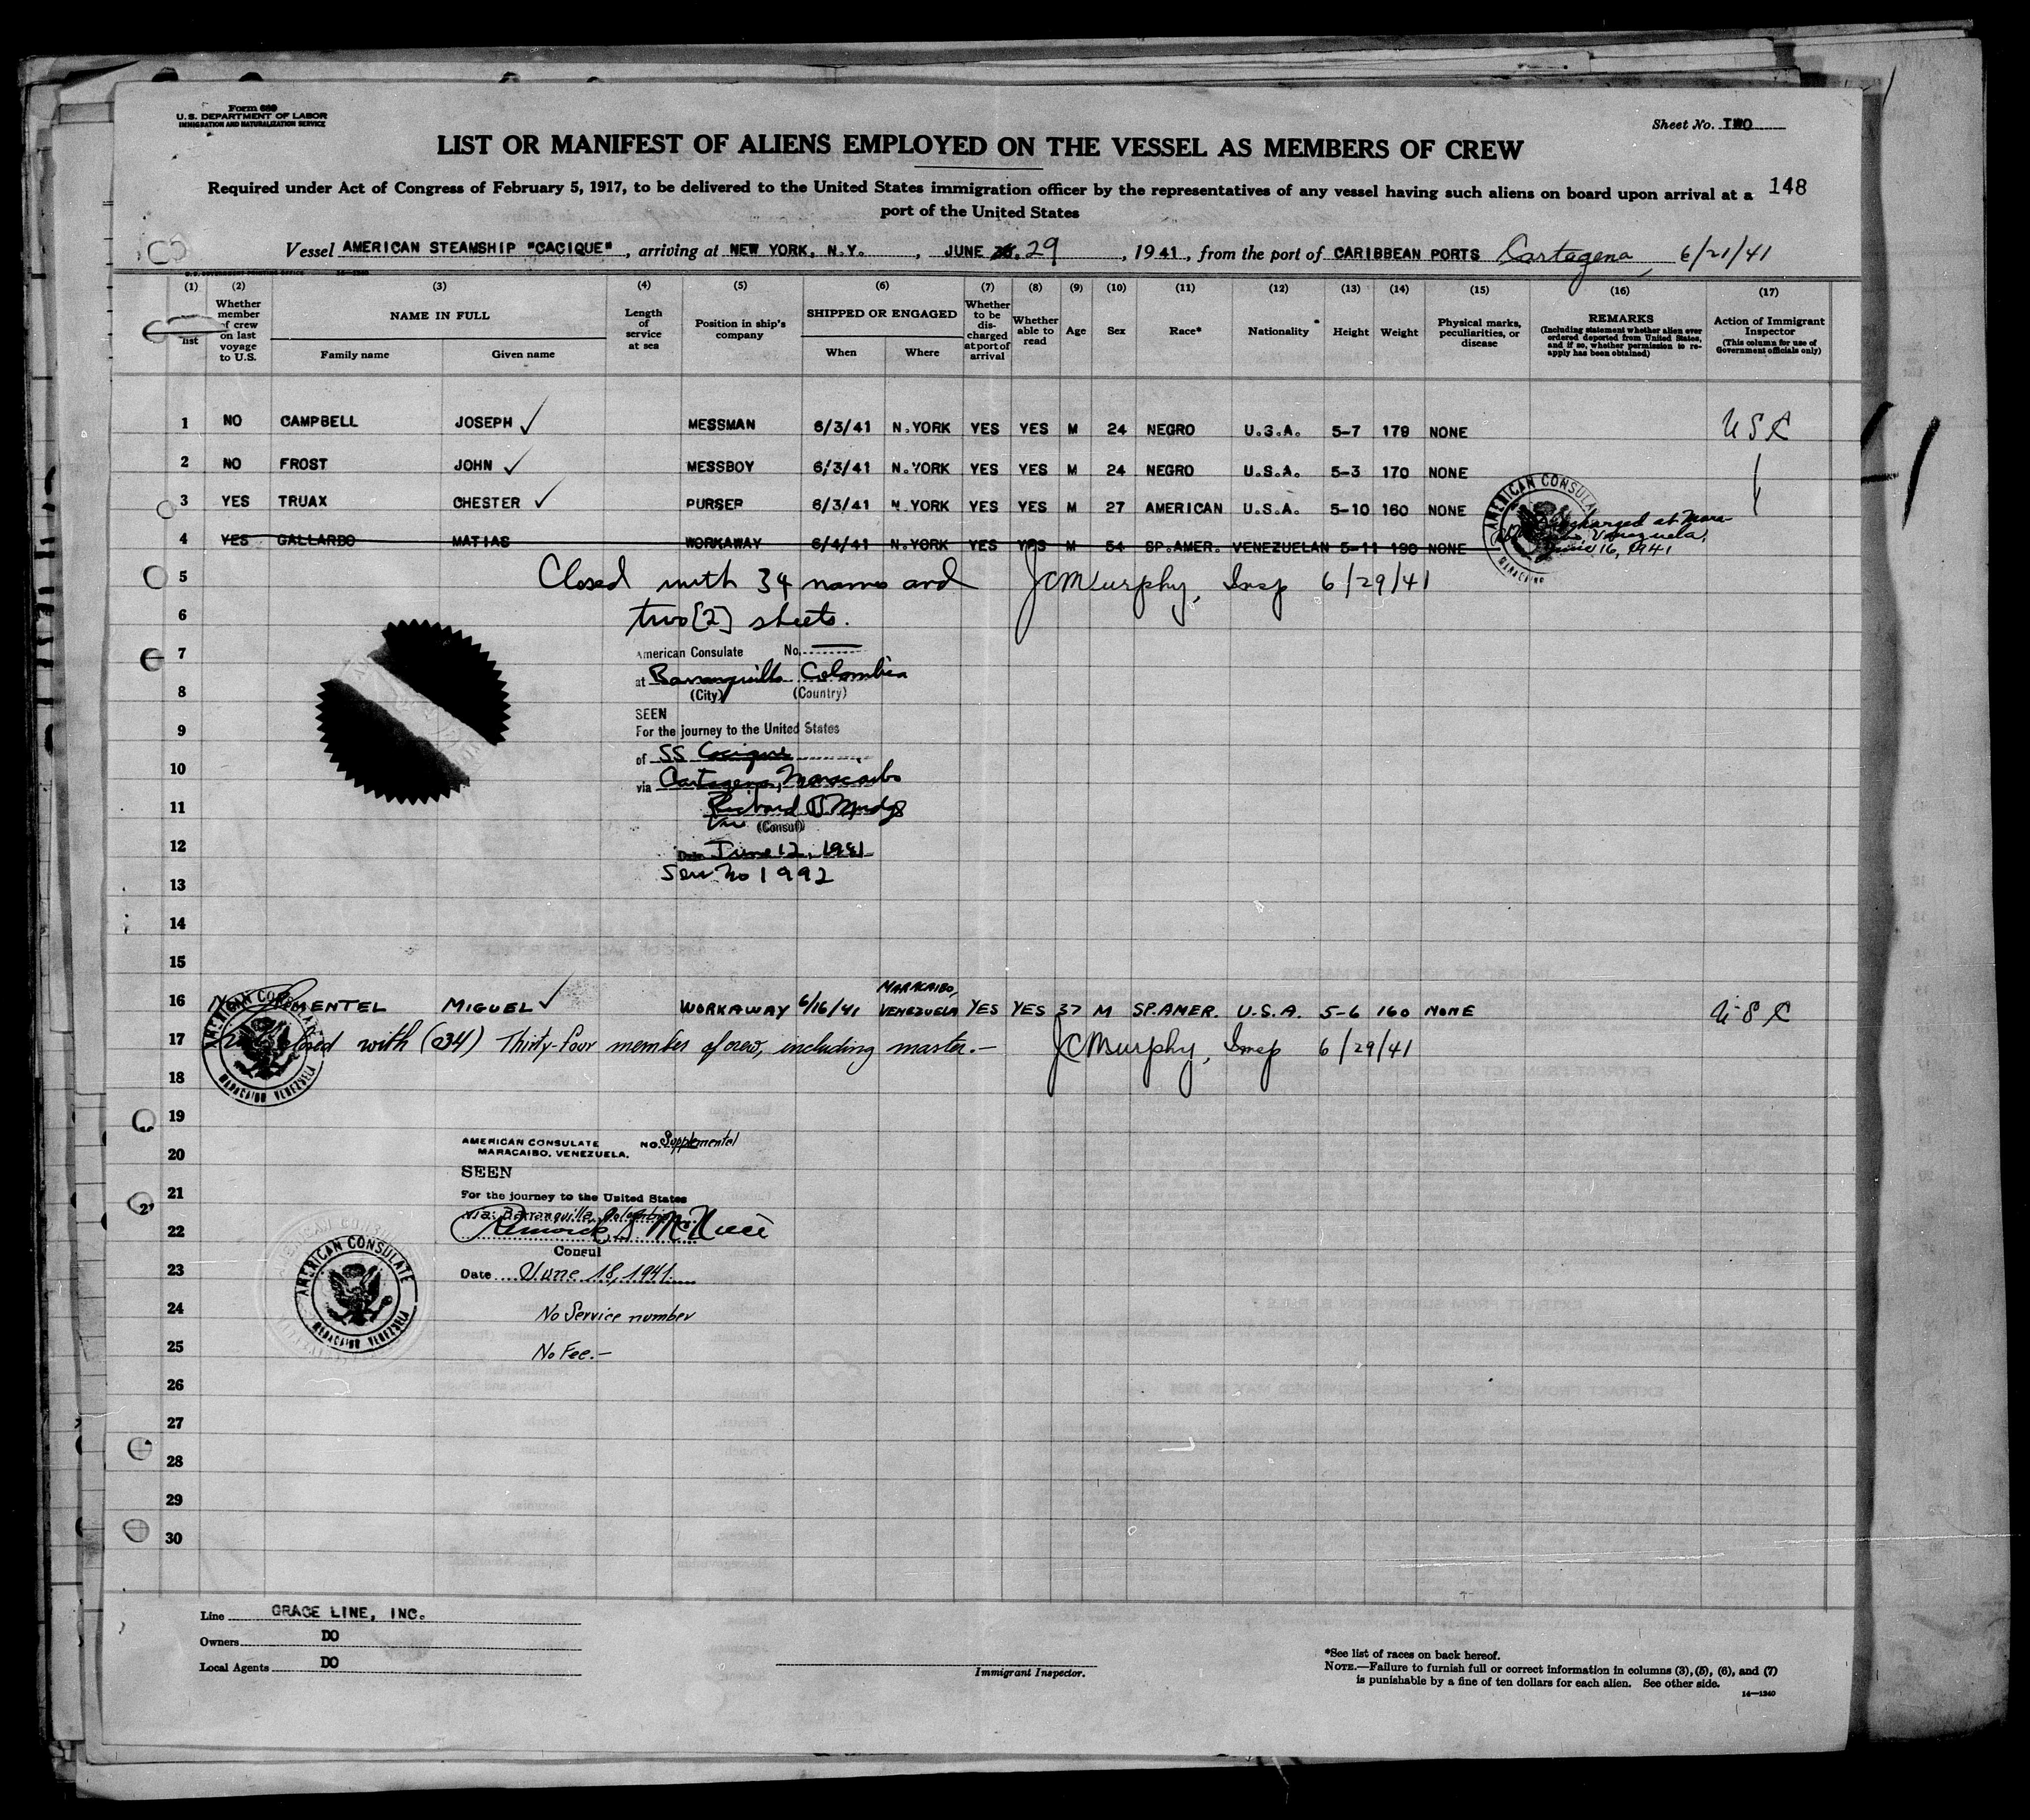 Form 689
U.S. DEPARTMENT OF LABOR
IMMIGRATION AND NATURALIZATION SERVICE
Sheet No. TWO
LIST OR MANIFEST OF ALIENS EMPLOYED ON THE VESSEL AS MEMBERS OF CREW
Required under Act of Congress of February 5, 1917, to be delivered to the United States immigration officer by the representatives of any vessel having such aliens on board upon arrival at a
port of the United States
148
Vessel AMERICAN STEAMSHIP "CACIQUE", arriving at NEW YORK, N.Y., JUNE 29, 1941, from the port of CARIBBEAN PORTS Cartagena, 6/21/41
(1) (2) (3) (4) (5) (6) (7) (8) (9) (10) (11) (12) (13) (14) (15) (16) (17)
list
Whether member of crew on last voyage to U.S.
NAME IN FULL
Family name Given name
Length of service at sea
Position in ship's company
SHIPPED OR ENGAGED
When Where
Whether to be discharged at port of arrival
Whether able to read
Age
Sex
Race*
Nationality
Height
Weight
Physical marks, peculiarities, or disease
REMARKS
(Including statement whether alien ever ordered deported from United States, and if so, whether permission to reapply has been obtained)
Action of Immigrant Inspector
(This column for use of Government officials only)
1 NO CAMPBELL JOSEPH ✓ MESSMAN 6/3/41 N.YORK YES YES M 24 NEGRO U.S.A. 5-7 179 NONE USC
2 NO FROST JOHN ✓ MESSBOY 6/3/41 N.YORK YES YES M 24 NEGRO U.S.A. 5-3 170 NONE
3 YES TRUAX CHESTER ✓ PURSER 6/3/41 N.YORK YES YES M 27 AMERICAN U.S.A. 5-10 160 NONE
4 YES GALLARDO MATIAS WORKAWAY 6/4/41 N.YORK YES YES M 54 SP.AMER. VENEZUELAN 5-11 190 NONE
AMERICAN CONSULATE
Discharged at Mara-
Venezuela,
June 16, 1941
5 Closed with 34 names and JCMurphy, Insp 6/29/41
6 two [2] sheets.
7 American Consulate No.
at Barranquilla Colombia
8 (City) (Country)
SEEN
9 For the journey to the United States
of SS Cacique
10 via Cartagena, Maracaibo
11 Richard D Mudge
Vice (Consul)
12 Date June 12, 1941
Serv No 1992
13
14
15
16 PIMENTEL MIGUEL ✓ WORKAWAY 6/16/41 MARACAIBO, VENEZUELA YES YES 37 M SP.AMER. U.S.A. 5-6 160 NONE USC
17 Closed with (34) Thirty-four member of crew, including master.— JCMurphy, Insp 6/29/41
AMERICAN CONSULATE
MARACAIBO VENEZUELA
18
19
AMERICAN CONSULATE NO. Supplemental
20 MARACAIBO, VENEZUELA.
SEEN
21 For the journey to the United States
via: Barranquilla, Colombia
22
Consul
AMERICAN CONSULATE
MARACAIBO VENEZUELA
23 Date June 18, 1941
24 No Service number
25 No Fee.—
26
27
28
29
30
Line GRACE LINE, INC.
Owners DO
Local Agents DO
Immigrant Inspector.
*See list of races on back hereof.
NOTE.—Failure to furnish full or correct information in columns (3), (5), (6), and (7)
is punishable by a fine of ten dollars for each alien. See other side.
14—1240